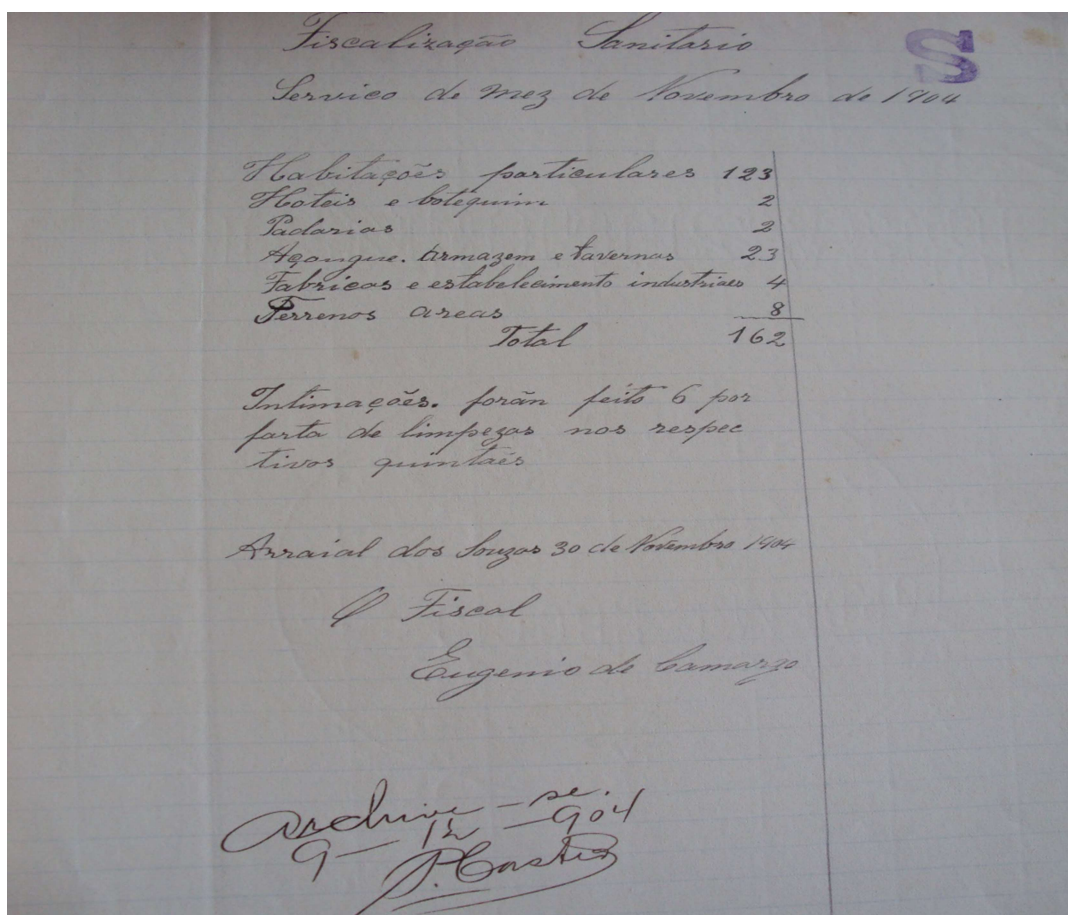 Fiscalização Sanitario
S
Servico de mez de Novembro de 1904
Habitações particulares 123
Hoteis e botequim 2
Padarias 2
Açougue. Armazem e tavernas 23
Fabricas e estabelecimento industriaes 4
Terrenos areas 8
Total 162
Intimações. forãn feito 6 por
farta de limpezas nos respec
tivos quintaēs
Arraial dos Souzas 30 de Novembro 1904
O Fiscal
Eugenio de Camargo
Archive-se.
9-12-904